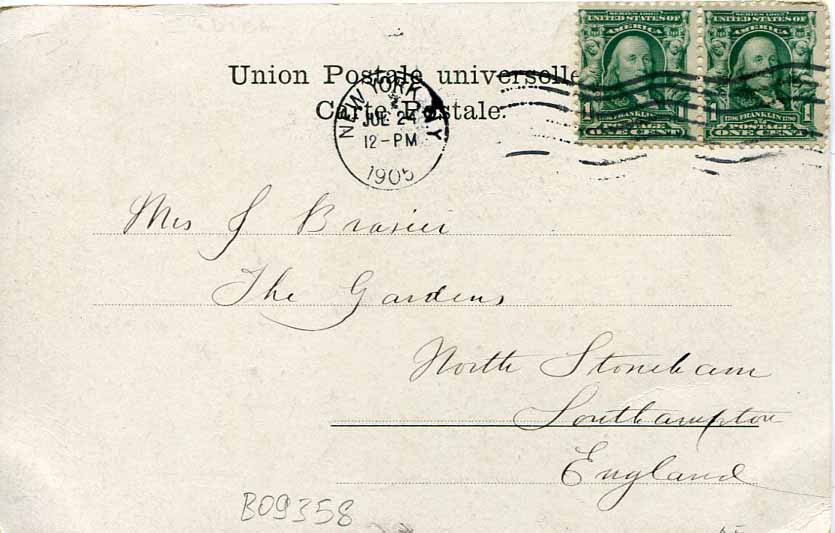 SERIES 1902
UNITED STATES OF
AMERICA
1 FRANKLIN 1
1706 1790
POSTAGE
ONE CENT
SERIES 1902
UNITED STATES OF
AMERICA
1 FRANKLIN 1
1706 1790
POSTAGE
ONE CENT
Union Postale universelle
Carte Postale.
NEW YORK, N.Y.
JUL 24
12-PM
1905
Mrs J Brasier
The Gardens
North Stoneham
Southampton
England
B09358